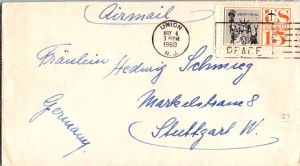 Airmail
UNION
MAY 4
7 PM
1960
N.J.
US
15¢
PEACE
Fräulein Hedwig Schmieg
Markelstrasse 8
Stuttgart W.
Germany